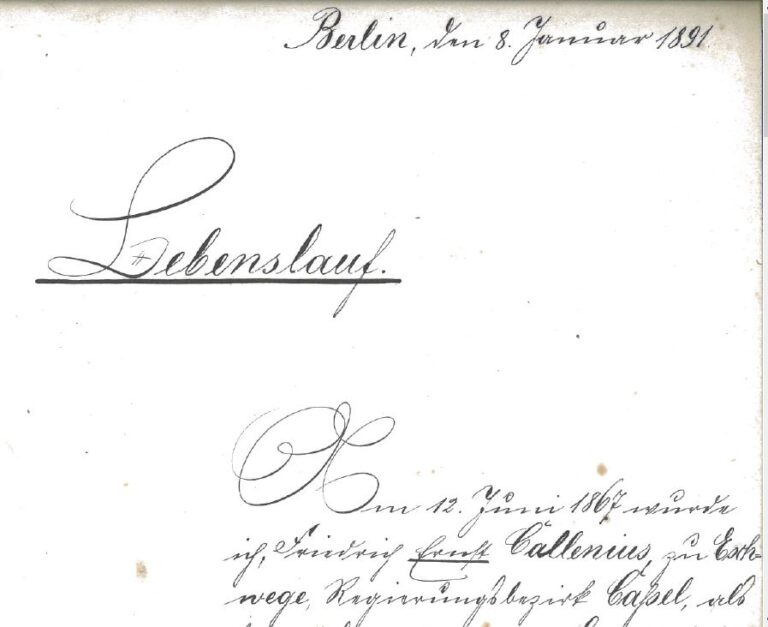 Berlin, den 8. Januar 1891
Lebenslauf.
Am 12. Juni 1867 wurde
ich, Friedrich Ernst Callenius, zu Esch-
wege, Regierungsbezirk Caßel, als